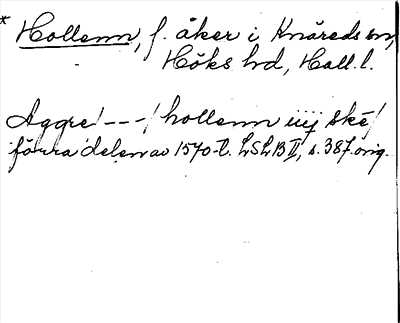 * Hollenn, f. åker i Knäreds sn,
Höks hd, Hall. l.
Aggre/ --- / hollenn iiij skē/
förra delen av 1570-t. LSLB II, s. 387. orig.